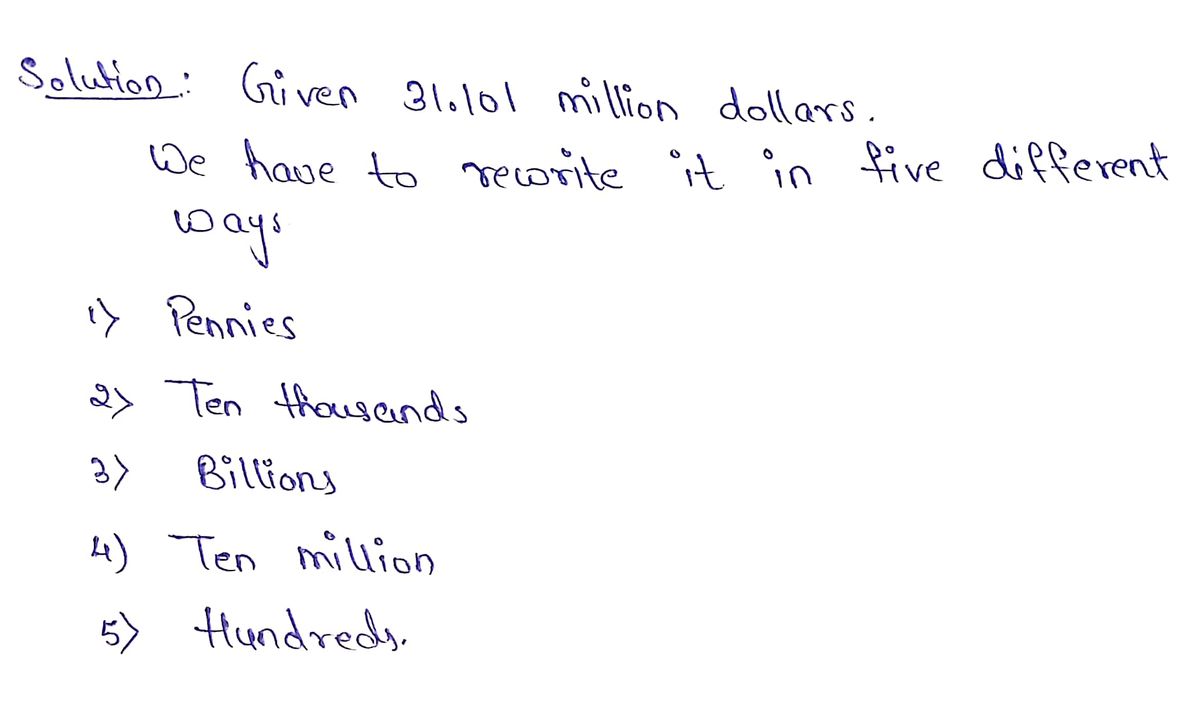 Solution: Given 31.101 million dollars.
We have to rewrite it in five different
ways
1) Pennies
2) Ten thousands
3) Billions
4) Ten million
5) Hundreds.